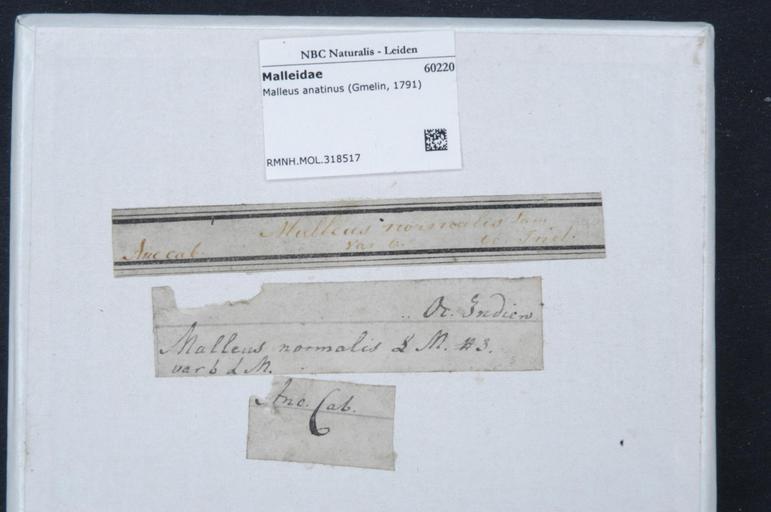 NBC Naturalis - Leiden
Malleidae 60220
Malleus anatinus (Gmelin, 1791)
RMNH.MOL.318517
Malleus normalis Lam
Anc cab. var b. Oc Ind.
Oc. Indien
Malleus normalis L M. #3.
var b L M.
Anc. Cab.